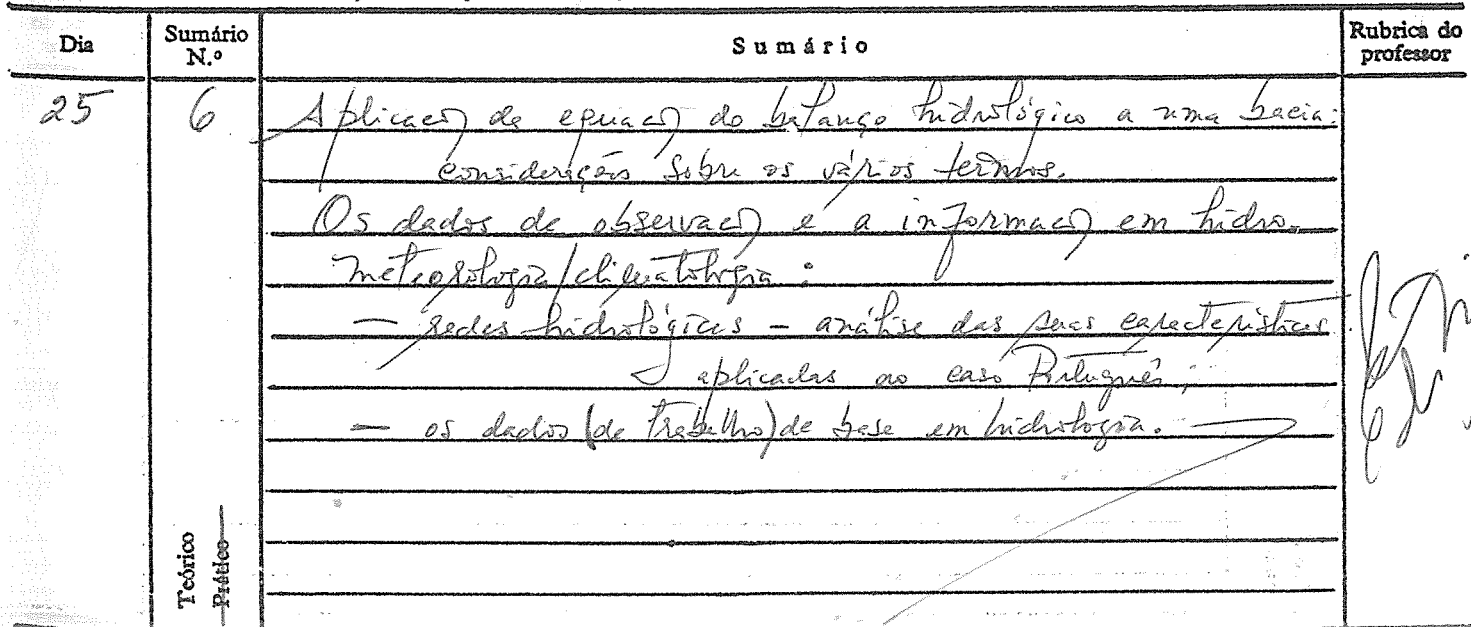 Dia
Sumário N.º
Sumário
Rubrica do professor
25
6
Aplicação da equação do balanço hidrológico a uma bacia:
considerações sobre os vários termos.
Os dados de observação e a informação em hidro-
meteorologia/climatologia:
— redes hidrológicas — análise das suas características
aplicadas ao caso Português;
— os dados (de trabalho) de base em hidrologia.
Teórico
Prático